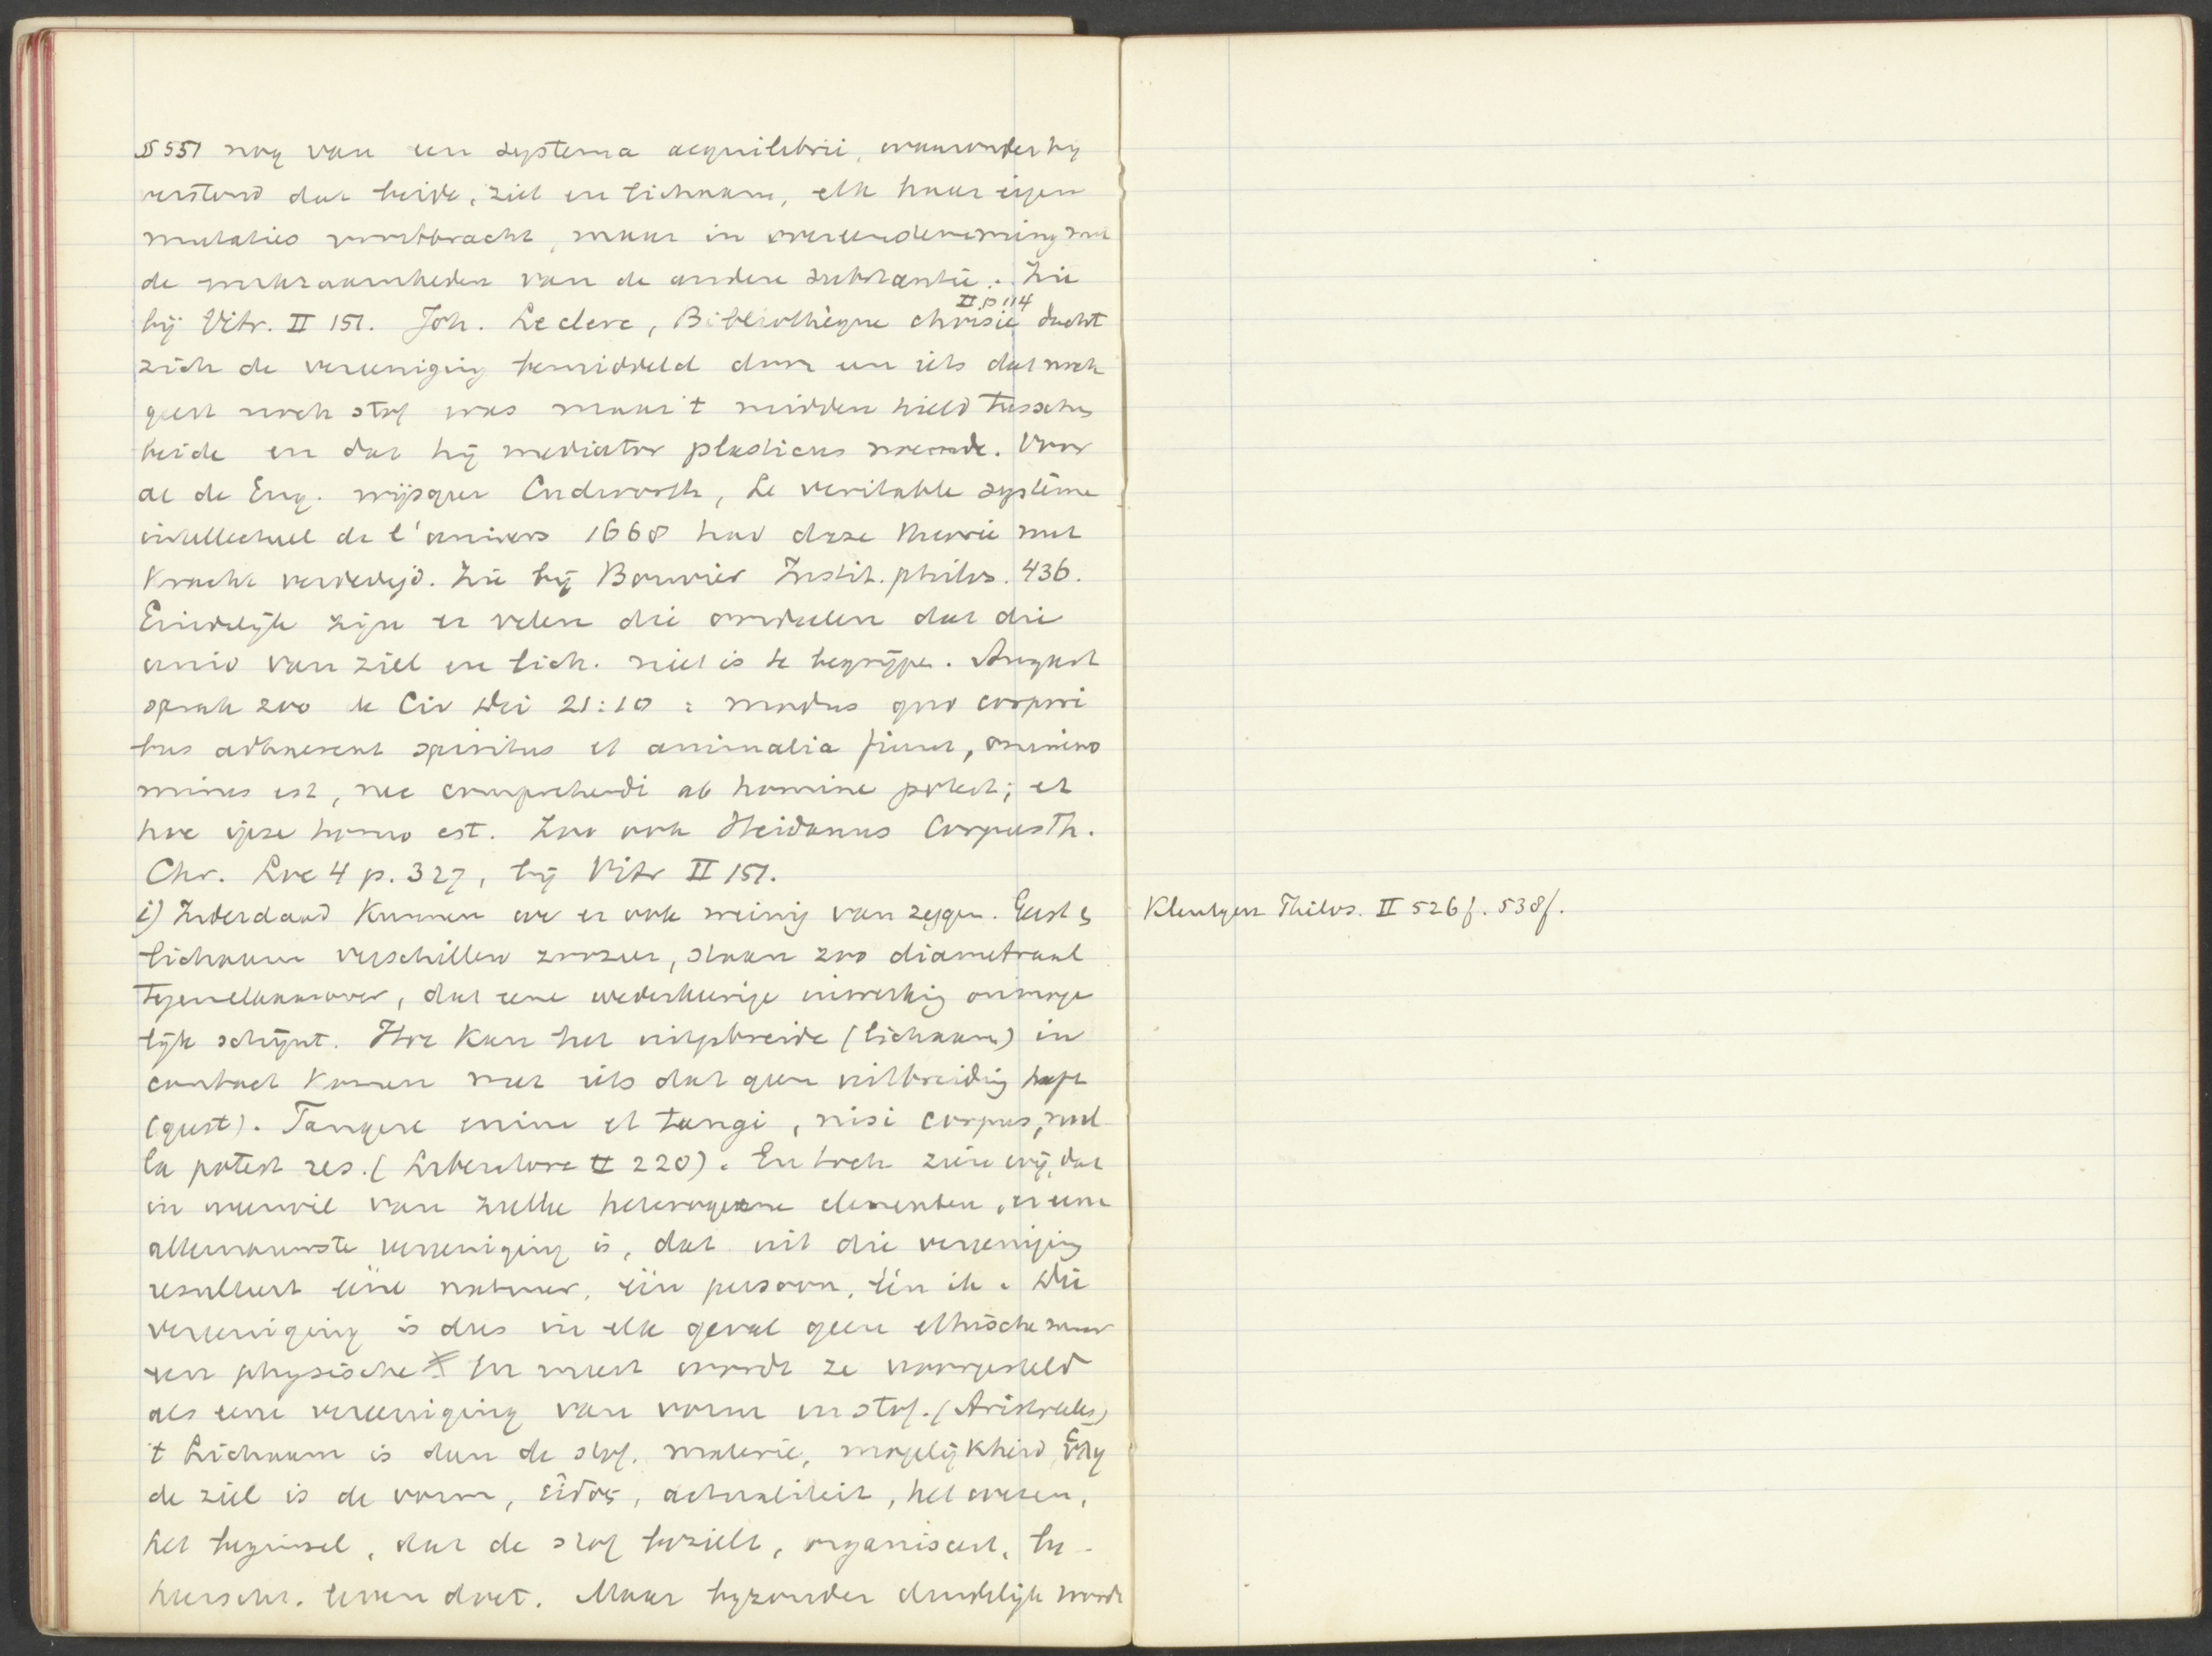 § 551 nog van een systema aequilibrii, waaronder hij
verstond dat beide, ziel en lichaam, elk haar eigen
mutaties voortbracht, maar in overeenstemming met
de werkzaamheden van de andere substantie. Zie
bij Vitr. II 151. Joh. Leclerc, Bibliothèque choisie II p 114 dacht
zich de vereeniging bemiddeld door een iets dat noch
geest noch stof was maar 't midden hield tusschen
beide en dat hij mediator plasticus noemde. Voor
al de Eng. wijsgeer Cudworth, Le veritable système
intellectuel de l'univers 1668 had deze theorie met
kracht verdedigd. Zie bij Bouvier Instit. philos. 436.
Eindelijk zijn er velen die oordeelen dat die
unio van ziel en lich. niet is te begrijpen. August
sprak zoo de Civ Dei 21:10 : modus quo corpori
bus adhaerent spiritus et animalia fiunt, omnino
mirus est, nec comprehendi ab homine potest; et
hoc ipse homo est. Zoo ook Heidanus Corpus Th.
Chr. Loc 4 p. 327, bij Vitr II 151.
i) Inderdaad kunnen we er ook weinig van zeggen. Geest en
lichaam verschillen zoozeer, staan zoo diametraal
tegenelkaarover, dat eene wederkeerige inwerking onmoge
lijk schijnt. Hoe kan het uitgebreide (lichaam) in
contact komen met iets dat geen uitbreiding heeft
(geest). Tangere enim et tangi, nisi corpus, nul
la potest res. (Liberatore II 220). En toch zien wij, dat
in weerwil van zulke heterogene elementen, er eene
allernauwste vereeniging is, dat uit die vereeniging
resulteert ééne natuur, één persoon, één ik. Die
vereeniging is dus in elk geval geen ethische maar
een physische. En meest wordt ze voorgesteld
als eene vereeniging van vorm en stof. (Aristoteles)
't Lichaam is dan de stof, materie, mogelijkheid, ὕλη
de ziel is de vorm, εἶδος, actualiteit, het wezen,
het beginsel, dat de stof bezielt, organiseert, be-
heerscht, leven doet. Maar bijzonder duidelijk wordt
Kleutgen Philos. II 526 f. 538 f.